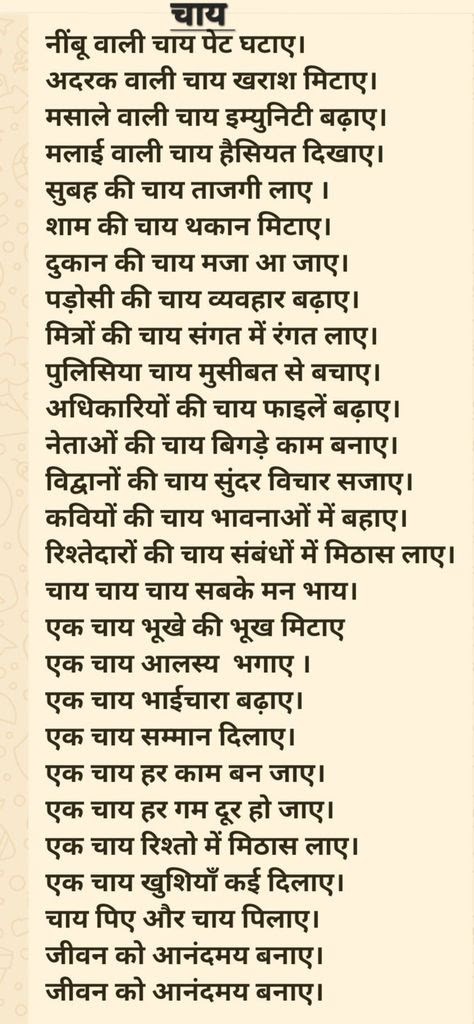 चाय
नींबू वाली चाय पेट घटाए।
अदरक वाली चाय खराश मिटाए।
मसाले वाली चाय इम्युनिटी बढ़ाए।
मलाई वाली चाय हैसियत दिखाए।
सुबह की चाय ताजगी लाए ।
शाम की चाय थकान मिटाए।
दुकान की चाय मजा आ जाए।
पड़ोसी की चाय व्यवहार बढ़ाए।
मित्रों की चाय संगत में रंगत लाए।
पुलिसिया चाय मुसीबत से बचाए।
अधिकारियों की चाय फाइलें बढ़ाए।
नेताओं की चाय बिगड़े काम बनाए।
विद्वानों की चाय सुंदर विचार सजाए।
कवियों की चाय भावनाओं में बहाए।
रिश्तेदारों की चाय संबंधों में मिठास लाए।
चाय चाय चाय सबके मन भाय।
एक चाय भूखे की भूख मिटाए
एक चाय आलस्य  भगाए ।
एक चाय भाईचारा बढ़ाए।
एक चाय सम्मान दिलाए।
एक चाय हर काम बन जाए।
एक चाय हर गम दूर हो जाए।
एक चाय रिश्तो में मिठास लाए।
एक चाय खुशियाँ कई दिलाए।
चाय पिए और चाय पिलाए।
जीवन को आनंदमय बनाए।
जीवन को आनंदमय बनाए।